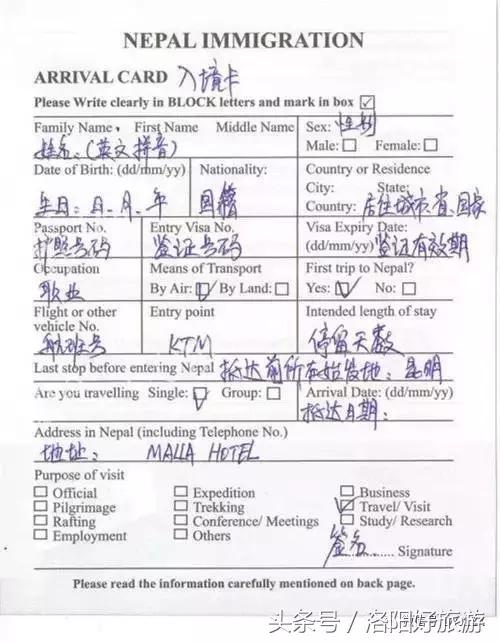 NEPAL IMMIGRATION
ARRIVAL CARD 入境卡
Please Write clearly in BLOCK letters and mark in box
Family Name, First Name Middle Name Sex: 性别
姓名:(英文拼音) Male: Female:
Date of Birth: (dd/mm/yy) Nationality: Country or Residence
City: State:
生日:日.月.年 国籍 Country: 居住城市.省.国家
Passport No. Entry Visa No. Visa Expiry Date:
护照号码 签证号码 (dd/mm/yy) 签证有效期
Occupation Means of Transport First trip to Nepal?
职业 By Air: By Land: Yes: No:
Flight or other Entry point Intended length of stay
vehicle No.
航班号 KTM 停留天数
Last stop before entering Nepal 抵达前所在始发地:昆明
Are you travelling Single: Group: Arrival Date: (dd/mm/yy)
抵达日期:
Address in Nepal (including Telephone No.)
地址: MALLA HOTEL
Purpose of visit
Official Expedition Business
Pilgrimage Trekking Travel/ Visit
Rafting Conference/ Meetings Study/ Research
Employment Others
签名 ........... Signature
Please read the information carefully mentioned on back page.
头条号/洛阳好旅游